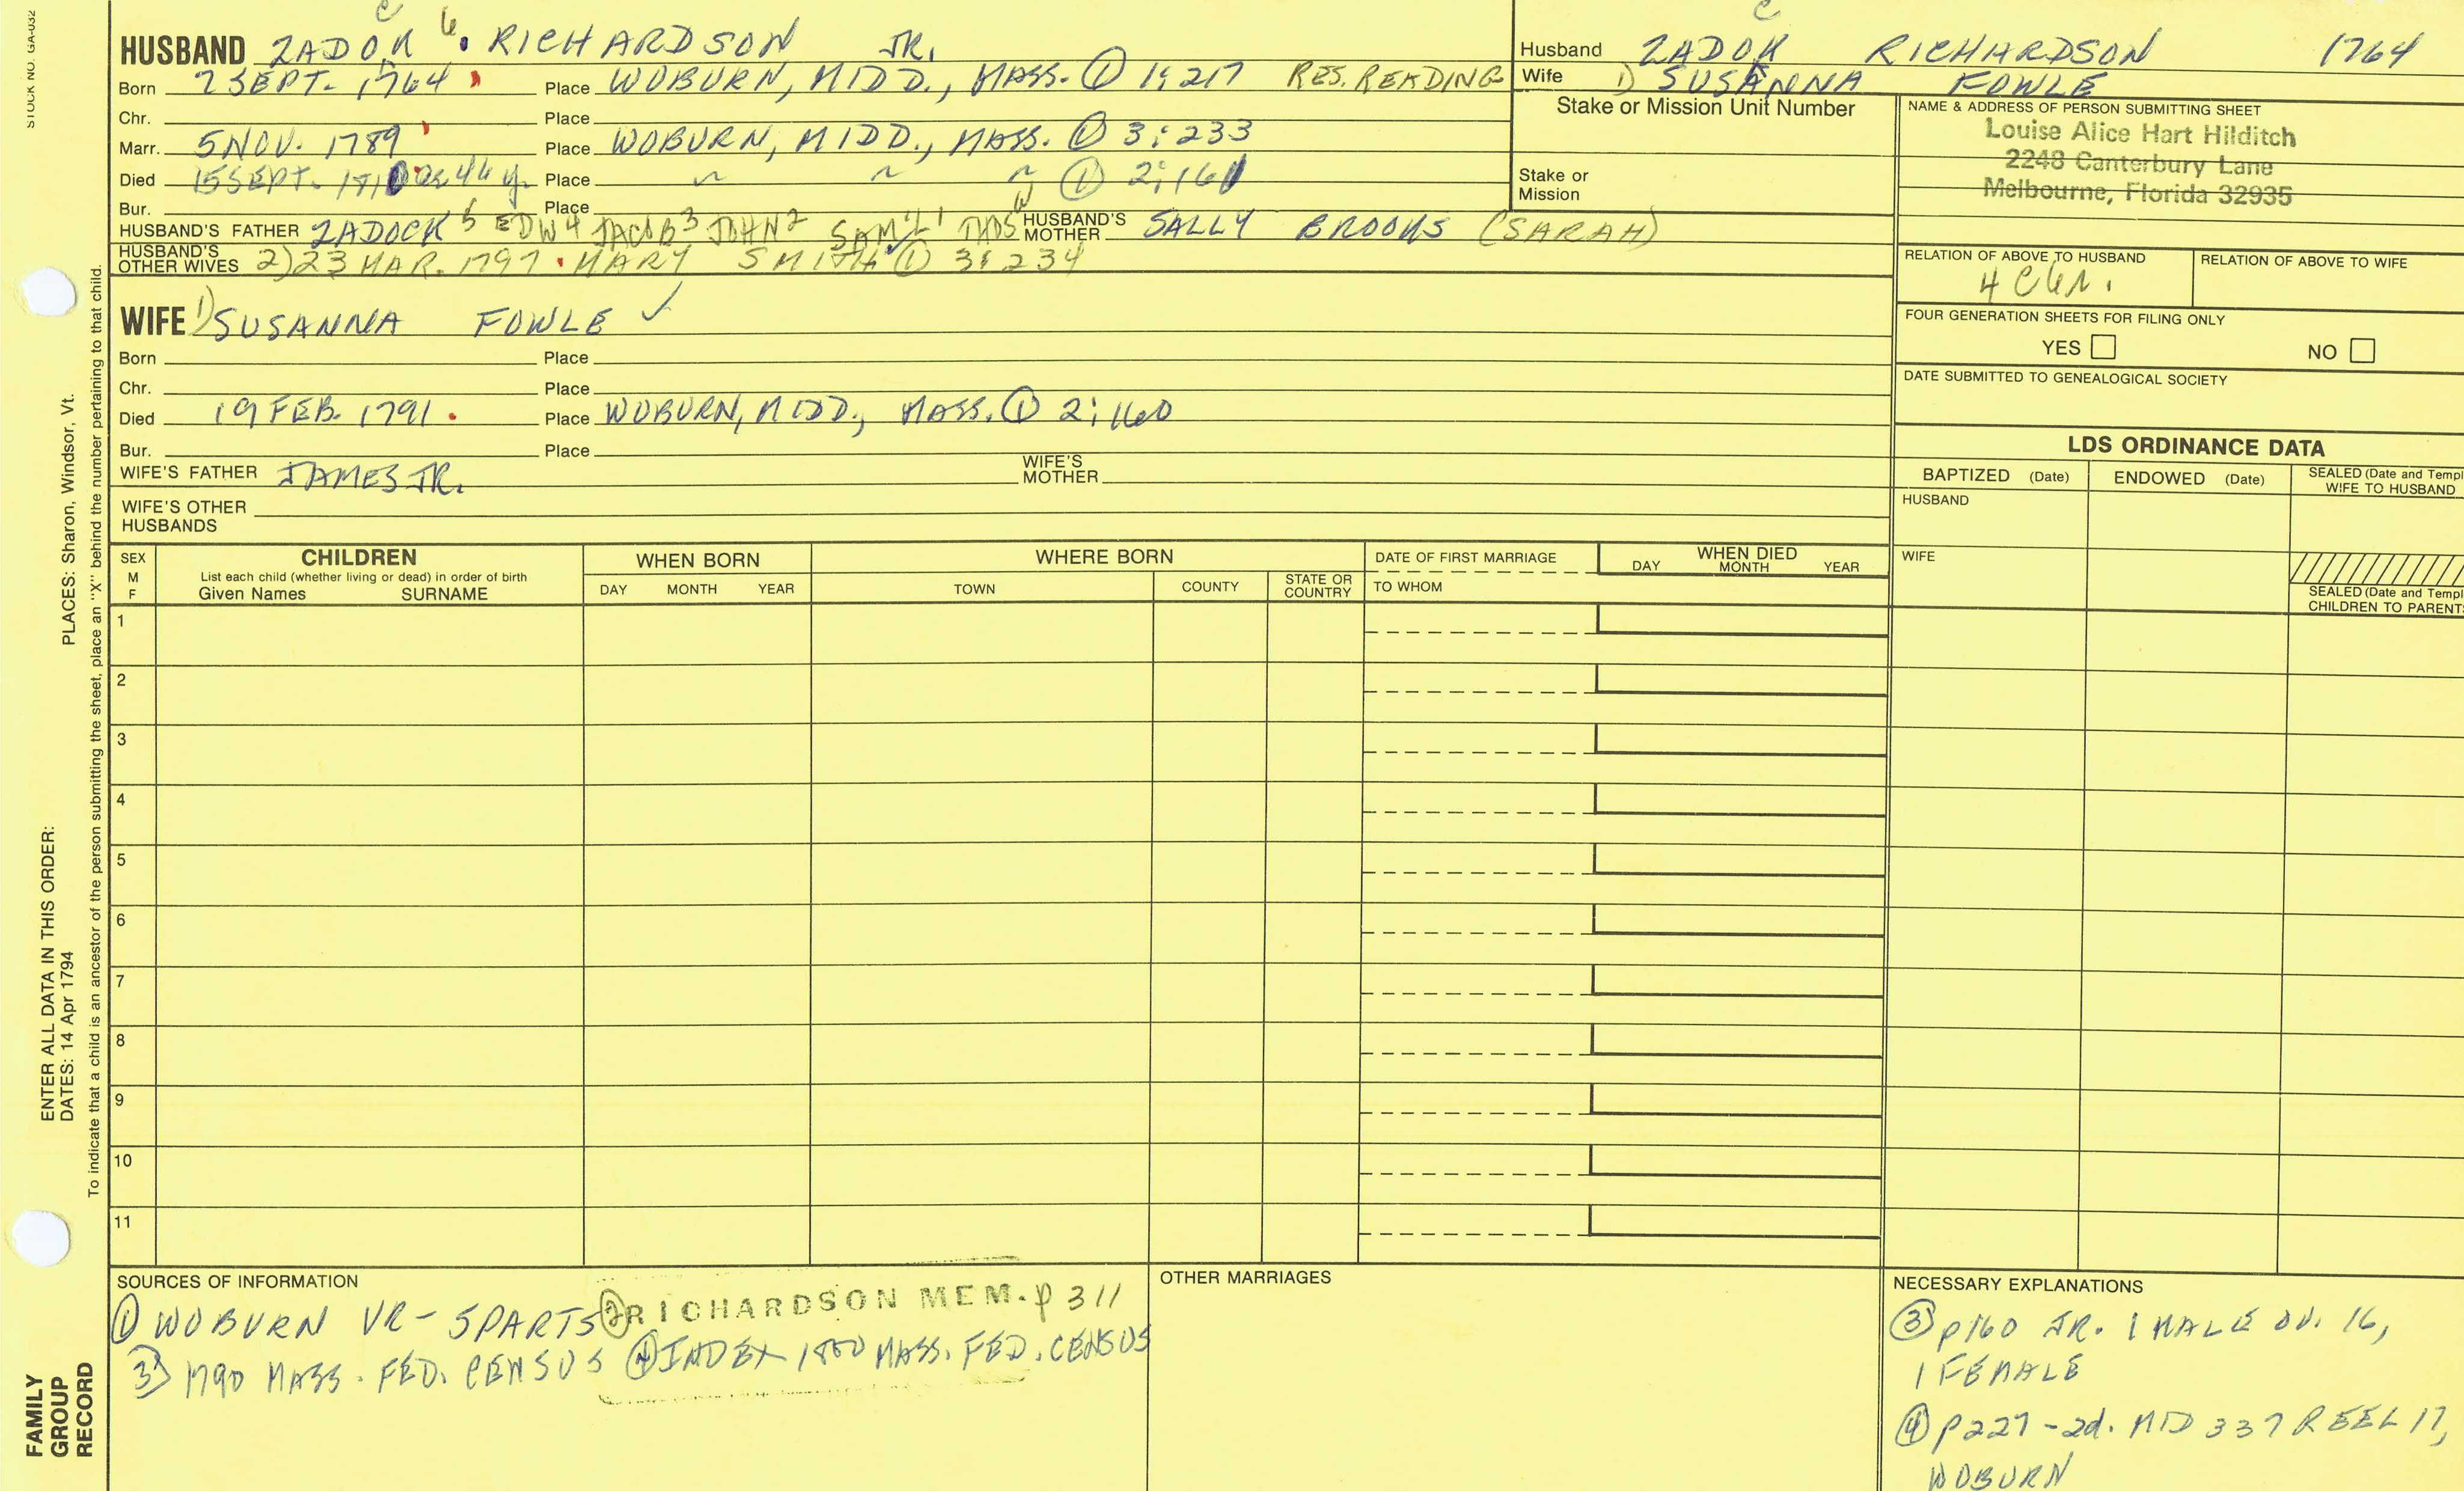 STOCK NO. GA-032
HUSBAND ZADOK 6 RICHARDSON JR.
Born 2 SEPT. 1764 Place WOBURN, MIDD., MASS. ① 1:217 RES. READING
Chr. Place
Marr. 5 NOV. 1789 Place WOBURN, MIDD., MASS. ① 3:233
Died 15 SEPT. 1810 ae 44 y. Place ~ ~ ~ ① 2:161
Bur. Place
HUSBAND'S FATHER ZADOCK 5 EDW 4 JACOB 3 JOHN 2 SAM'L 1 THOS W HUSBAND'S MOTHER SALLY BROOKS (SARAH)
HUSBAND'S OTHER WIVES 2) 23 MAR. 1797 MARY SMITH ① 3:234
WIFE 1) SUSANNA FOWLE ✓
Born Place
Chr. Place
Died 19 FEB. 1791 Place WOBURN, MIDD., MASS. ① 2:160
Bur. Place
WIFE'S FATHER JAMES JR. WIFE'S MOTHER
WIFE'S OTHER HUSBANDS
Husband ZADOK RICHARDSON 1764
Wife 1) SUSANNA FOWLE
Stake or Mission Unit Number
Stake or Mission
NAME & ADDRESS OF PERSON SUBMITTING SHEET
Louise Alice Hart Hilditch
2248 Canterbury Lane
Melbourne, Florida 32935
RELATION OF ABOVE TO HUSBAND RELATION OF ABOVE TO WIFE
FOUR GENERATION SHEETS FOR FILING ONLY
YES NO
DATE SUBMITTED TO GENEALOGICAL SOCIETY
LDS ORDINANCE DATA
BAPTIZED (Date) ENDOWED (Date) SEALED (Date and Templ
WIFE TO HUSBAND
HUSBAND
WIFE
SEALED (Date and Templ
CHILDREN TO PARENTS
SEX M F CHILDREN WHEN BORN WHERE BORN DATE OF FIRST MARRIAGE WHEN DIED
List each child (whether living or dead) in order of birth
Given Names SURNAME DAY MONTH YEAR TOWN COUNTY STATE OR COUNTRY TO WHOM DAY MONTH YEAR
1
2
3
4
5
6
7
8
9
10
11
SOURCES OF INFORMATION
① WOBURN VR - 5 PARTS ② RICHARDSON MEM. p 311
③ 1790 MASS. FED. CENSUS ④ INDEX 1800 MASS. FED. CENSUS
OTHER MARRIAGES
NECESSARY EXPLANATIONS
③ p160 JR. 1 MALE OV. 16,
1 FEMALE
④ p227 - 2d. MID 337 REEL 17,
WOBURN
PLACES: Sharon, Windsor, Vt.
ENTER ALL DATA IN THIS ORDER:
DATES: 14 Apr 1794
To indicate that a child is an ancestor of the person submitting the sheet, place an "X" behind the number pertaining to that child.
FAMILY
GROUP
RECORD